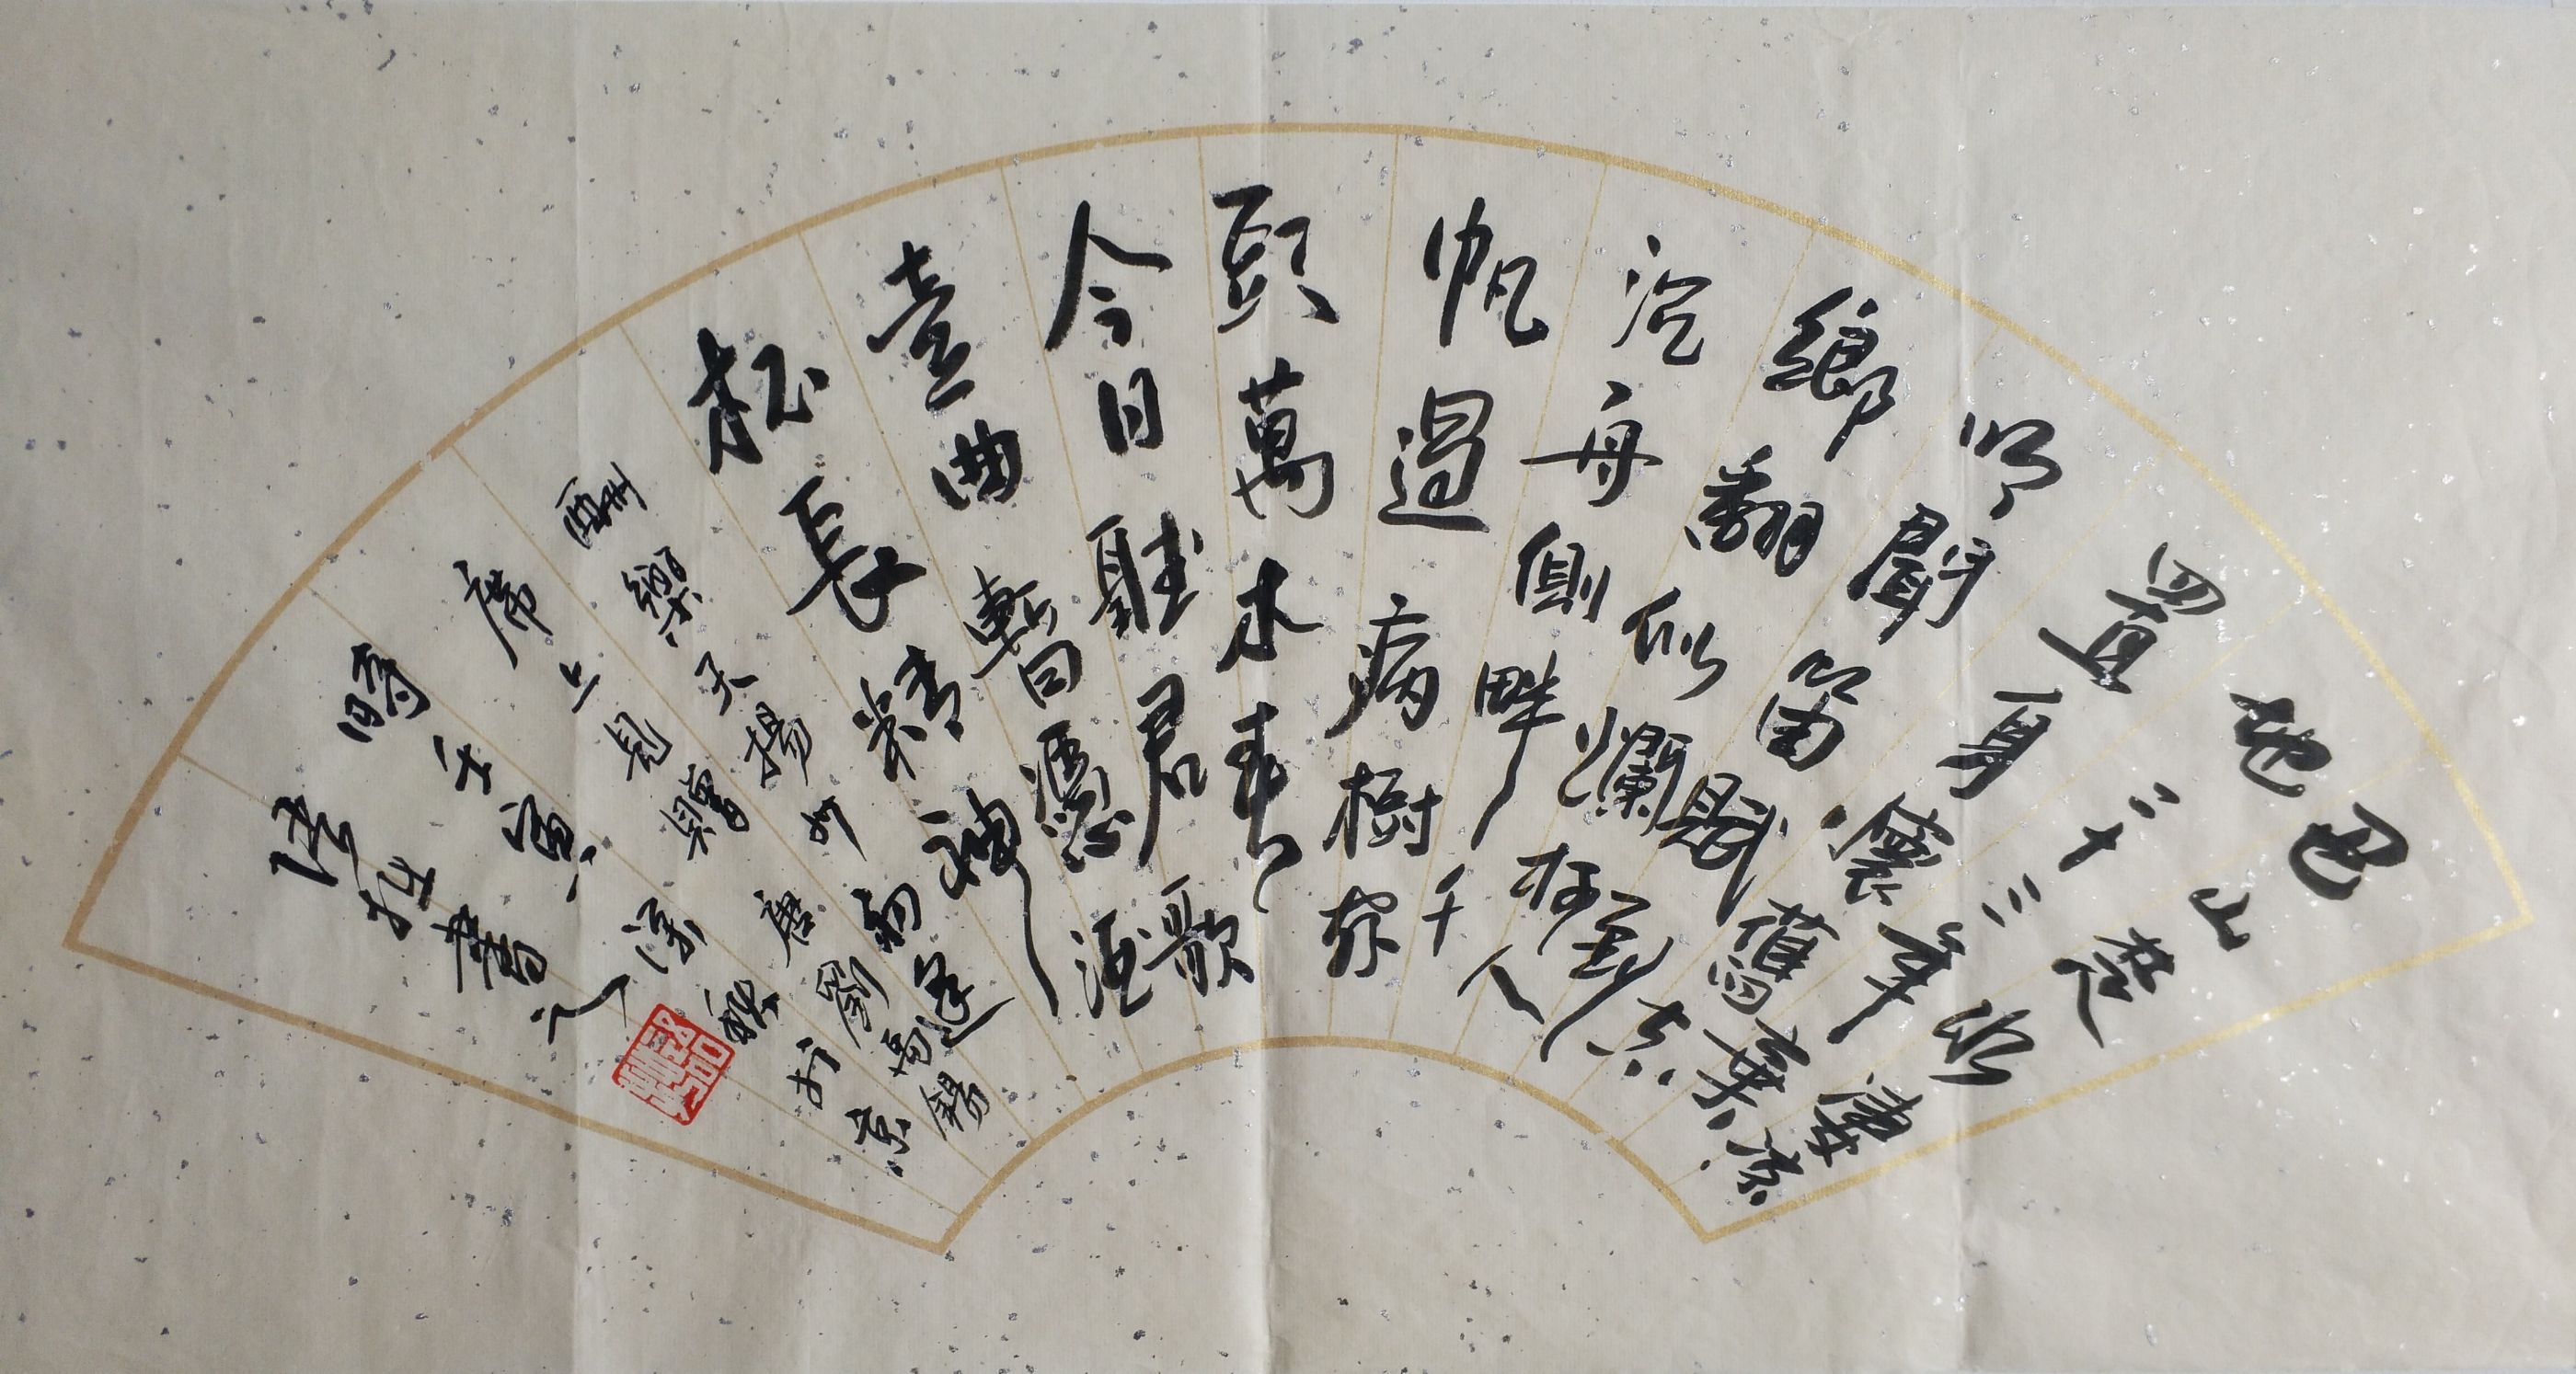 巴山楚水淒涼
地二十三年棄
置身懷舊空
吟聞笛賦到
鄉翻似爛柯人
沉舟側畔千
帆過病樹前
頭萬木春
今日聽君歌
壹曲暫憑酒
杯長精神
酬樂天揚州初逢
席上見贈 唐劉禹錫
時壬寅深秋於京
書之